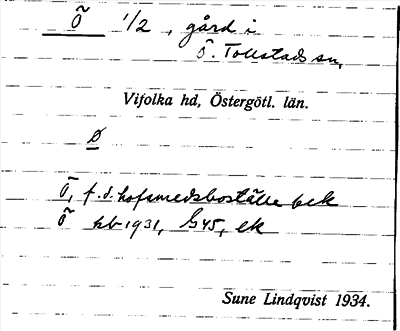 Õ 1/2, gård i
Ö. Tollstads sn,
Vifolka hd, Östergötl. län.
Ø
Õ, f.d. hofsmedsboställe bek
Õ hb 1931, G45, ek
Sune Lindqvist 1934.